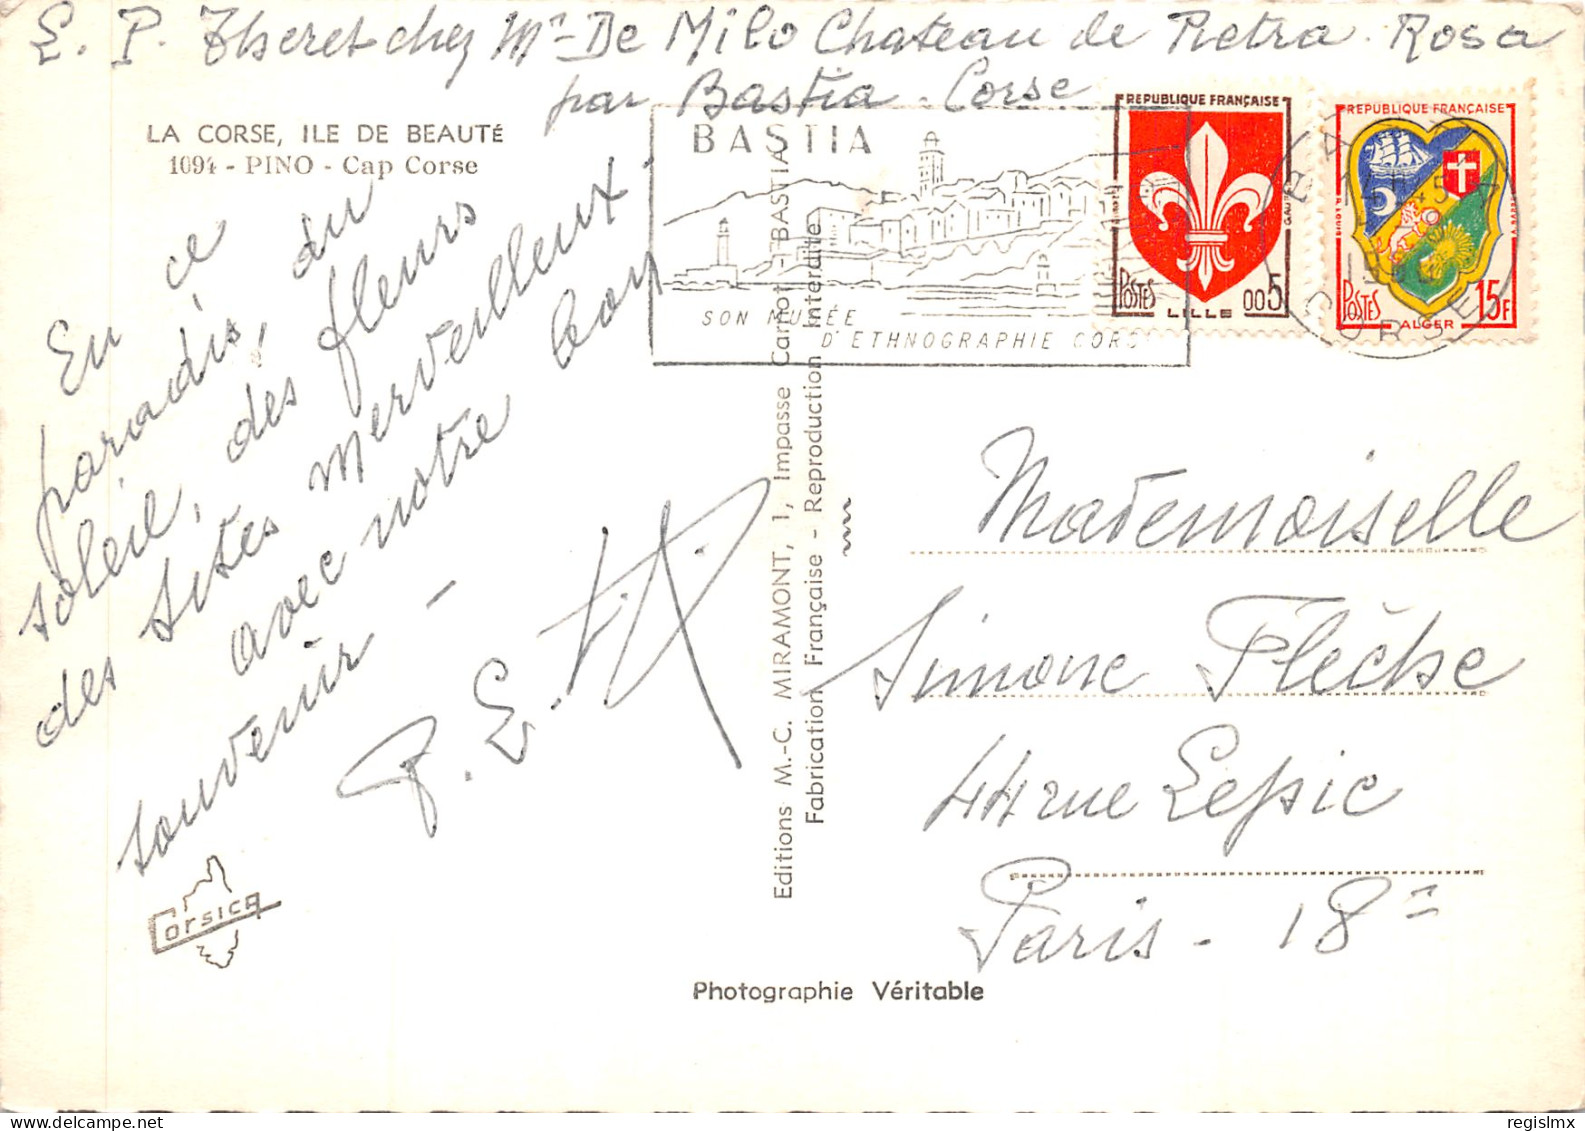 E. P. Theret chez Mr De Milo Chateau de Pietra Rosa
par Bastia - Corse
LA CORSE, ILE DE BEAUTÉ
1094 - PINO - Cap Corse
En ce
paradis, du
soleil, des fleurs
des sites merveilleux.
avec notre bon
souvenir -
P. E. Th
Corsica
BASTIA
SON MUSÉE
D'ETHNOGRAPHIE CORSE
REPUBLIQUE FRANÇAISE
POSTES
LILLE
005
REPUBLIQUE FRANÇAISE
POSTES
ALGER
15F
BASTIA
CORSE
Editions M.-C. MIRAMONT, 1, Impasse Carnot - BASTIA
Fabrication Française - Reproduction Interdite
Mademoiselle
Simone Flèche
44 rue Lepic
Paris - 18e
Photographie Véritable
regislmx